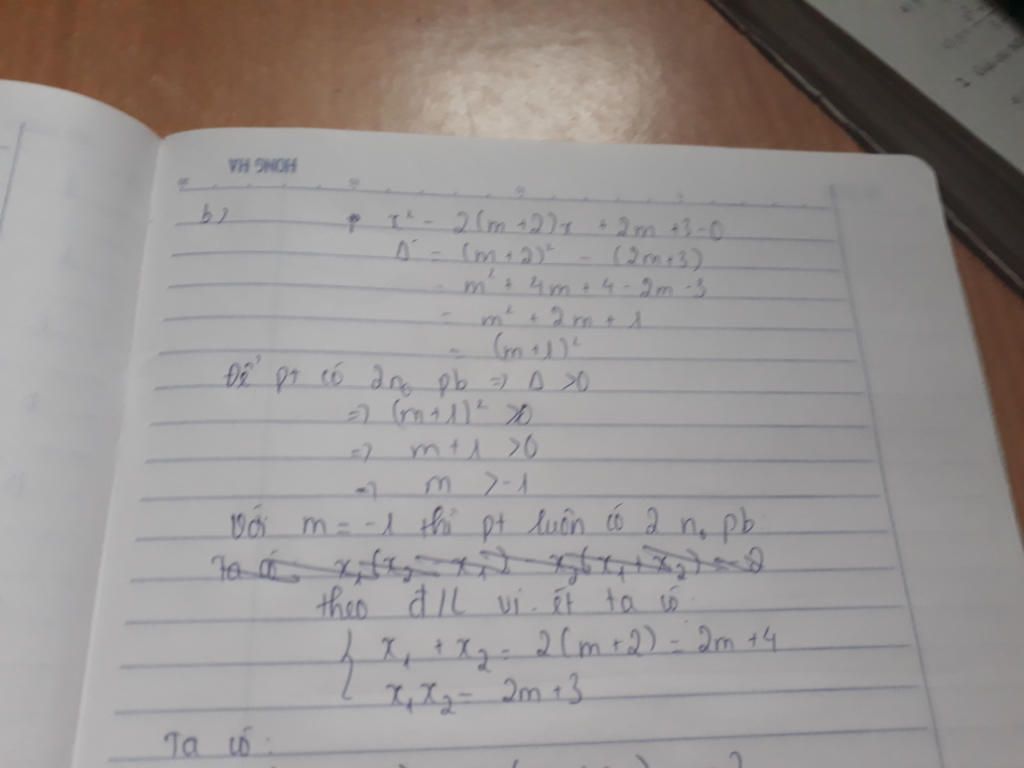 HONG HA
b) x² - 2(m+2)x + 2m+3=0
Δ' = (m+2)² - (2m+3)
= m² + 4m + 4 - 2m - 3
= m² + 2m + 1
= (m+1)²
Để pt có 2n₀ pb => Δ >0
=> (m+1)² >0
=> m+1 >0
=> m >-1
Với m = -1 thì pt luôn có 2 n₀ pb
Ta có x₁(x₂ - x₁) x₂(x₁+x₂) = 2
theo đ/l vi-ét ta có
{ x₁ + x₂ = 2(m+2) = 2m+4
x₁x₂ = 2m+3
Ta có: